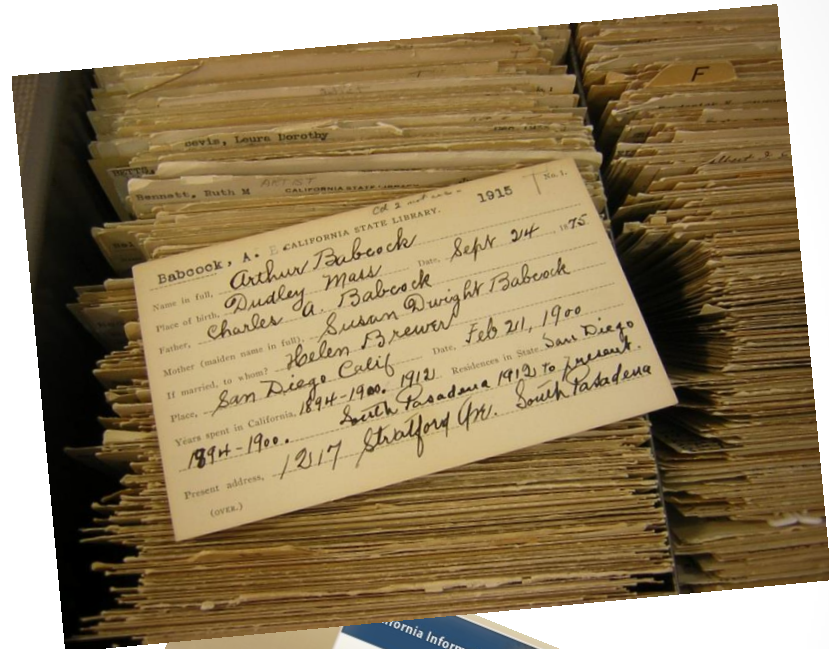 F
sevis, Leura Dorothy
Bennatt, Ruth M
ARTIST
CALIFORNIA STATE LIBRARY
1915
No. 1.
Babcock, A. E
CALIFORNIA STATE LIBRARY.
Name in full, Arthur Babcock
Place of birth, Dudley Mass Date, Sept 24 1875
Father, Charles A. Babcock
Mother (maiden name in full), Susan Dwight Babcock
If married, to whom? Helen Brewer
Place, San Diego Calif Date, Feb 21, 1900
Years spent in California, 1894-1900. 1912 Residences in State San Diego
1894-1900. South Pasadena 1912 to present.
Present address, 1217 Stratford Ave. South Pasadena
(OVER.)